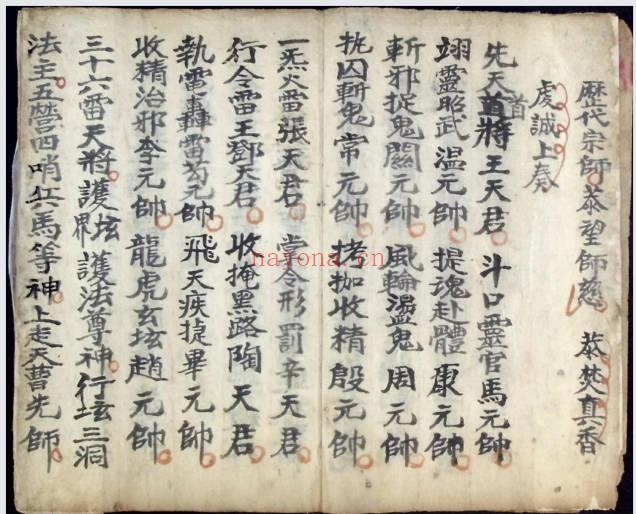 歷代宗師恭望師慈 恭焚真香
虔誠上奏
先天首將王天君 斗口靈官馬元帥
首
翊靈昭武溫元帥 提魂赴體康元帥
斬邪捉鬼關元帥 風輪盪鬼周元帥
执囚斬鬼常元帥 拷枷收精殷元帥
一炁火雷張天君 掌令形罰辛天君
行令雷王鄧天君 收掩黑路陶天君
執雷轟雷苟元帥 飛天疾捷畢元帥
收精治邪李元帥 龍虎玄坛趙元帥
三十六雷天將護坛護界護法尊神行坛三洞
法主五營四哨兵馬等神上走天曹先師
nayona.cn